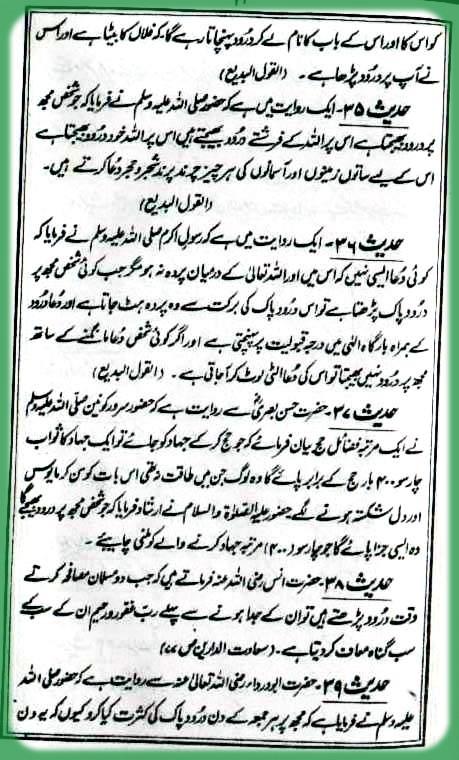 کو اس کا اور اس کے باپ کا نام لے کر درود پہنچاتا رہے گا، کہ فلاں کا بیٹا ہے اور اس
نے آپ پر درود پڑھا ہے۔ (القول البدیع)
حدیث ۳۵۔ ایک روایت میں ہے کہ حضور صلی اللہ علیہ وسلم نے فرمایا کہ جو شخص مجھ
پر درود بھیجتا ہے اس پر اللہ کے فرشتے درود بھیجتے ہیں اس پر اللہ خود درود بھیجتا ہے
اس کے لیے ساتوں زمینوں اور آسمانوں کی ہر چیز چرند پرند شجر و حجر دعا کرتے ہیں۔
(القول البدیع)
حدیث ۳۶۔ ایک روایت میں ہے کہ رسول اکرم صلی اللہ علیہ وسلم نے فرمایا کہ
کوئی دعا ایسی نہیں کہ اس میں اور اللہ تعالیٰ کے درمیان پردہ نہ ہو مگر جب کوئی شخص مجھ پر
درود پاک پڑھتا ہے تو اس درود پاک کی برکت سے وہ پردہ ہٹ جاتا ہے اور دعا درود
کے ہمراہ بارگاہ الٰہی میں درجہ قبولیت پر پہنچتی ہے اور اگر کوئی شخص دعا مانگنے کے ساتھ
مجھ پر درود نہیں بھیجتا تو اس کی دعا الٹی لوٹ کر آجاتی ہے۔ (القول البدیع)
حدیث ۳۷۔ حضرت حسن بصریؒ سے روایت ہے کہ حضور سرور کونین صلی اللہ علیہ وسلم
نے ایک مرتبہ فضائل حج بیان فرمائے کہ جو حج کر کے جہاد کو جائے تو ایک جہاد کا ثواب
چار سو ۴۰۰ بار حج کے برابر پائے گا وہ لوگ جن میں طاقت نہ تھی اس بات کو سن کر مایوس
اور دل شکستہ ہونے لگے حضور علیہ الصلوٰۃ والسلام نے ارشاد فرمایا کہ جو شخص مجھ پر درود بھیجے گا
وہ ایسی جزا پائے گا جو چار سو (۴۰۰) مرتبہ جہاد کرنے والے کو ملنی چاہیئے۔
حدیث ۳۸۔ حضرت انس رضی اللہ عنہ فرماتے ہیں کہ جب دو مسلمان مصافحہ کرتے
وقت درود پڑھتے ہیں تو ان کے جدا ہونے سے پہلے رب غفور و رحیم ان کے سب کے
سب گناہ معاف کر دیتا ہے۔ (سعادت الدارین ص ۷۷)
حدیث ۳۹۔ حضرت ابو درداء رضی اللہ تعالیٰ عنہ سے روایت ہے کہ حضور صلی اللہ
علیہ وسلم نے فرمایا ہے کہ مجھ پر ہر جمعہ کے دن درود پاک کی کثرت کیا کرو کیوں کہ یہ دن